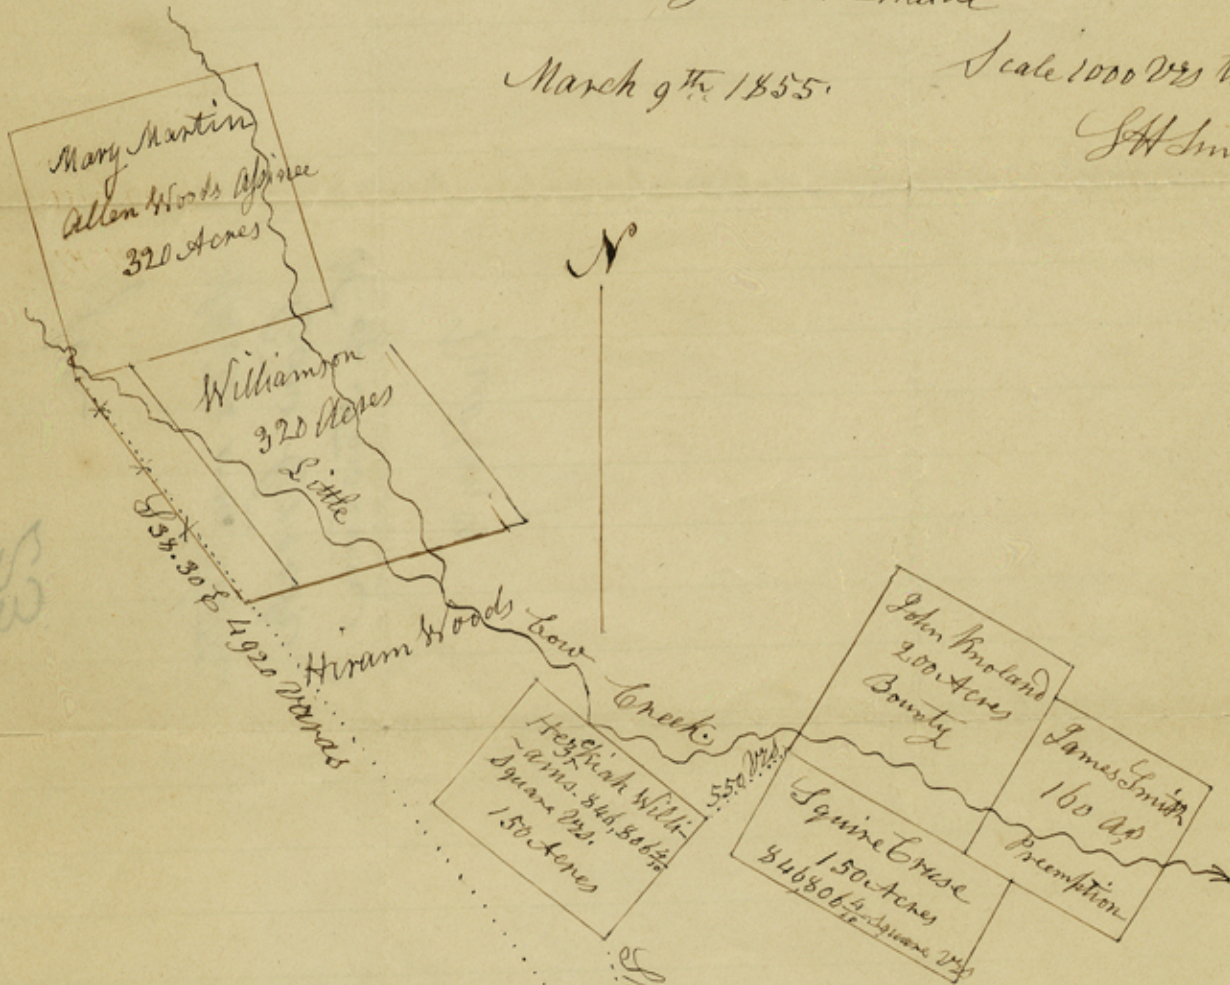 March 9th 1855.
Scale 1000 Vrs
Mary Martin
Allen Woods Assinee
320 Acres
N
Williamson
320 Acres
Little
S 38.30 E 4920 Varas
Hiram Woods
Cow Creek.
Hezekiah Willi-
-ams. 846,806 4/10
Square Vrs.
150 Acres
550 Vrs.
John Knoland
200 Acres
Bounty
James Smith
160 Acs
Preemption
Squire Cruse
150 Acres
846,806 4/10 Square Vrs
S